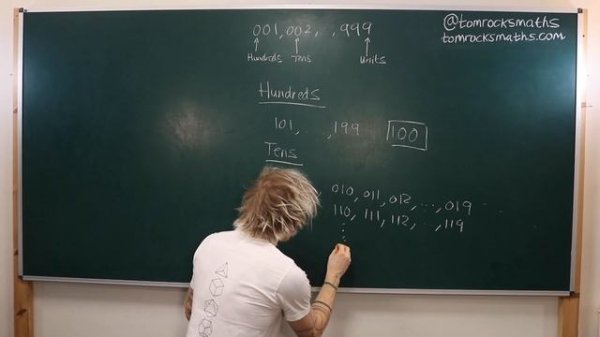 @tomrocksmaths
tomrocksmaths.com
001, 002, . , 999
Hundreds Tens Units
Hundreds
101, . . . , 199 100
Tens
010, 011, 012, ..., 019 ..
110, 111, 112, .. , 119